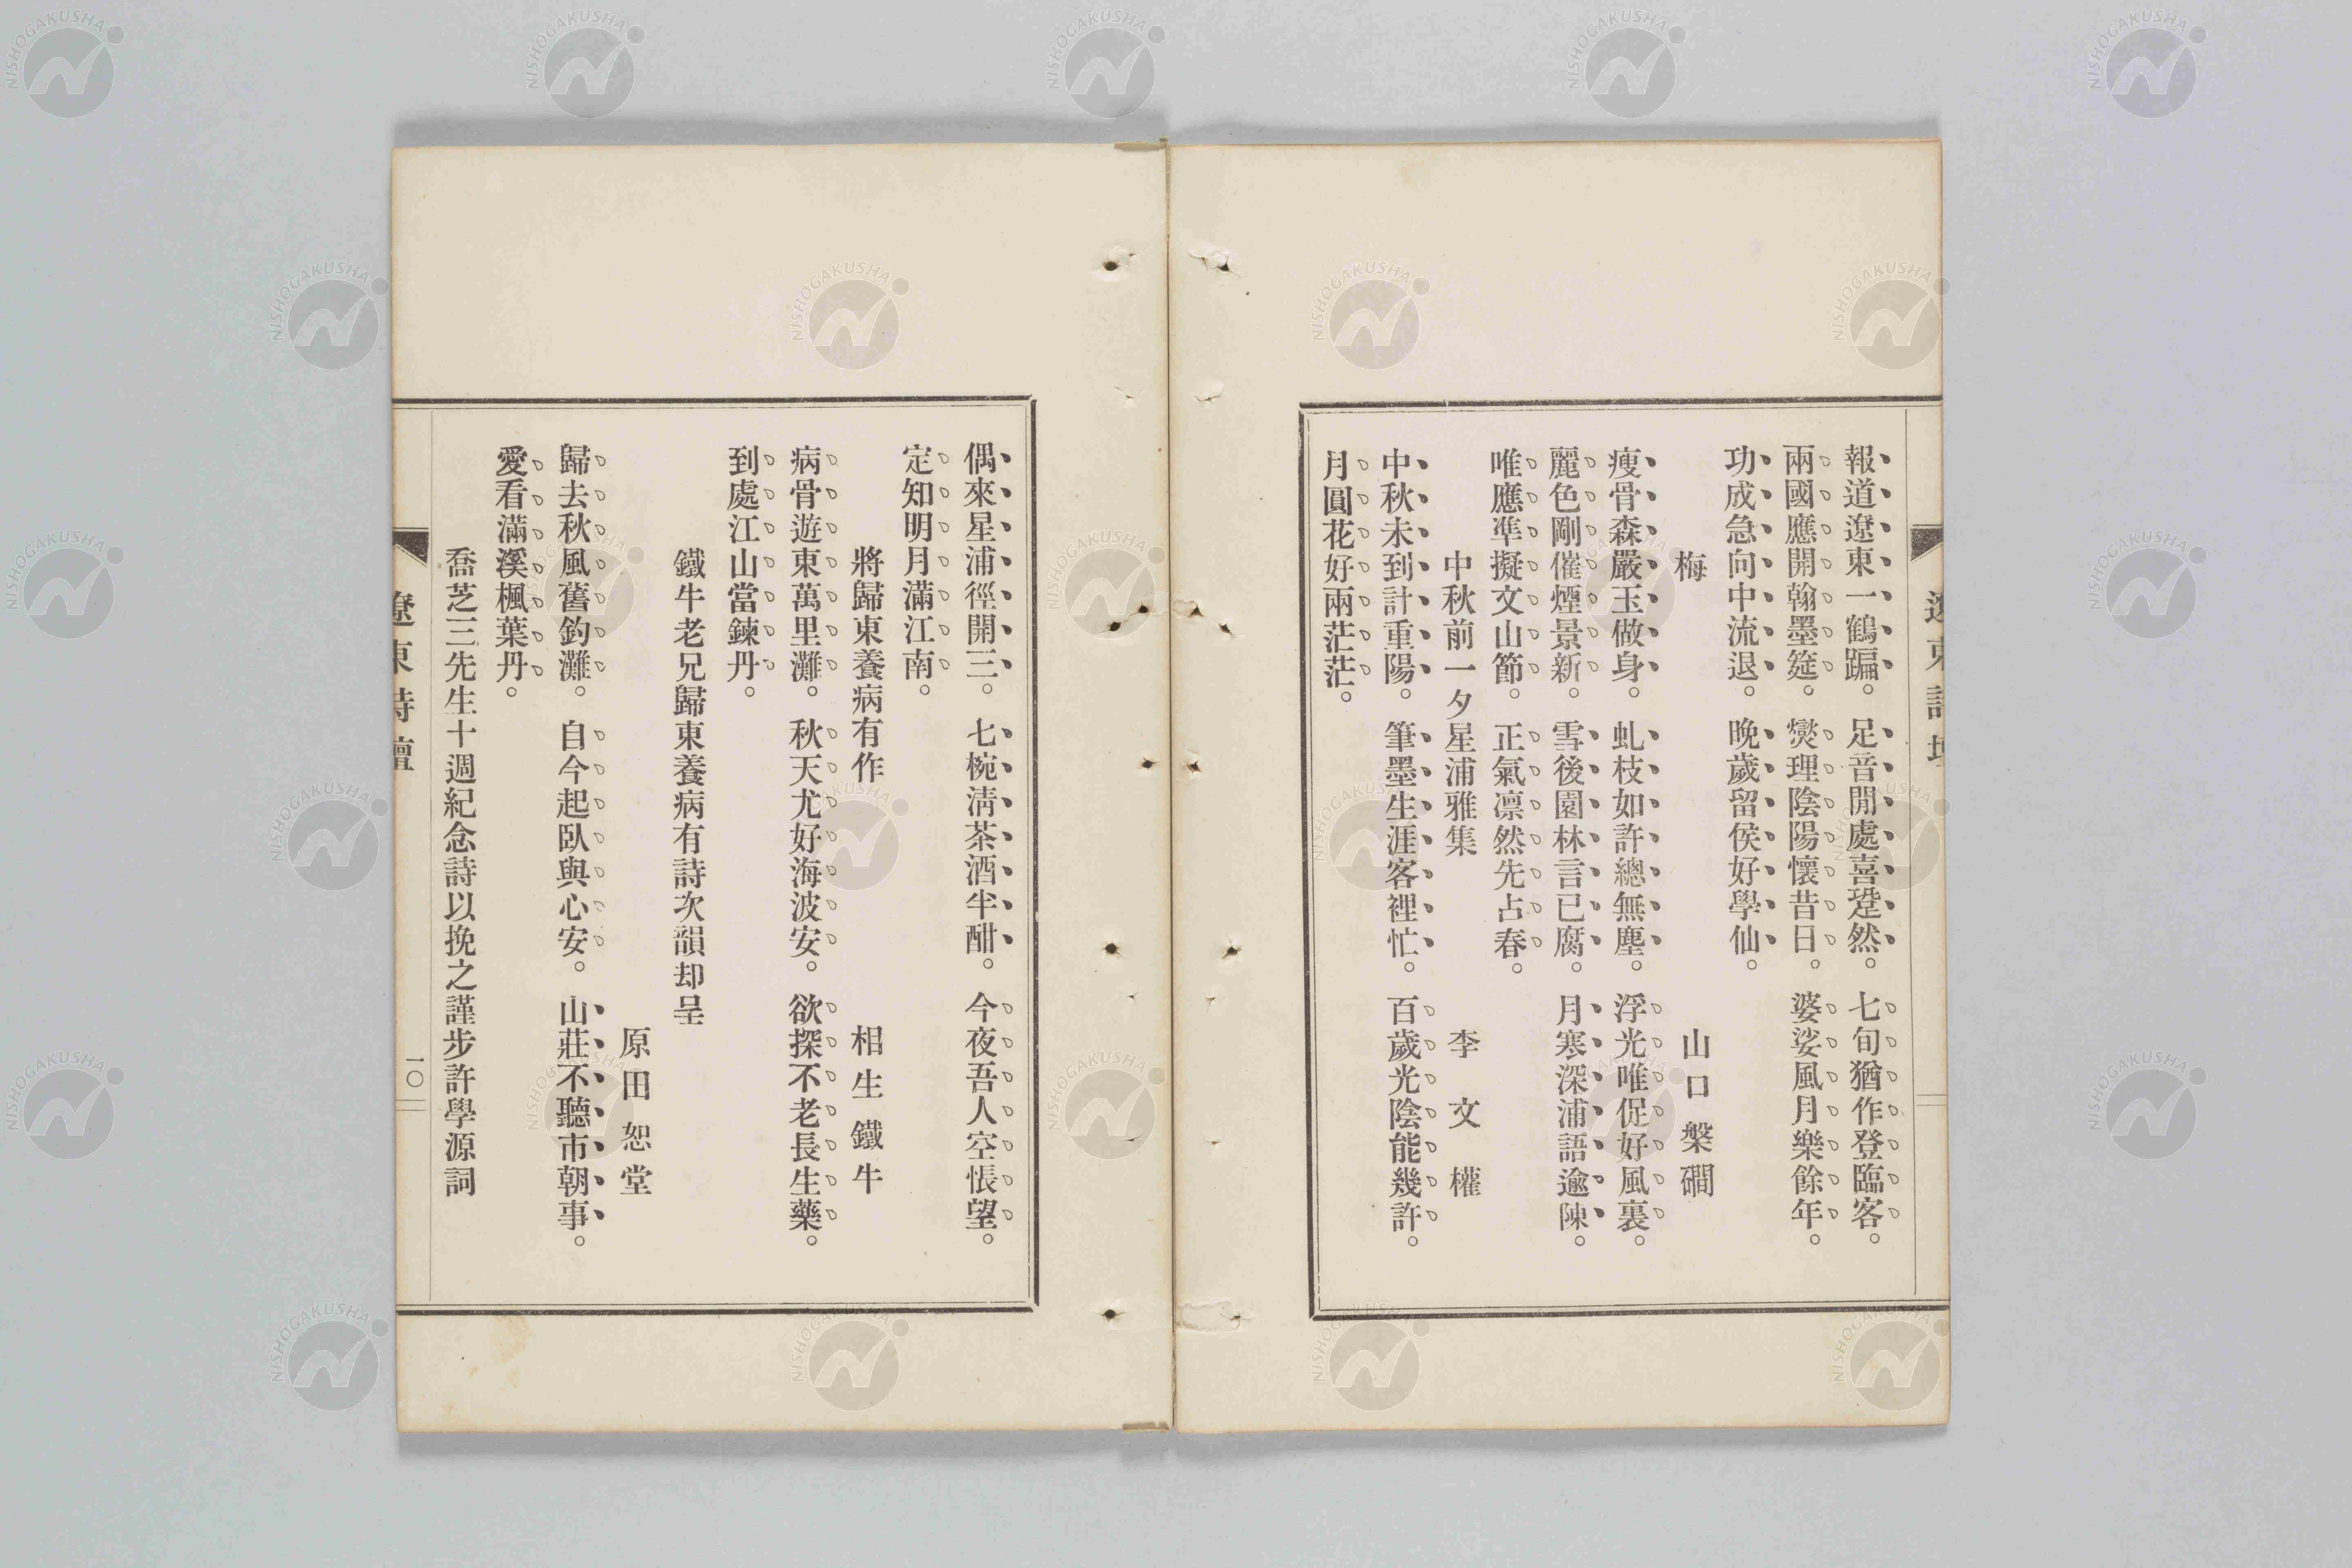 報道遼東一鶴蹁。足音聞處喜跫然。七旬猶作登臨客。
兩國應開翰墨筵。爕理陰陽懷昔日。婆娑風月樂餘年。
功成急向中流退。晩歲留侯好學仙。
梅 山口槃磵
瘦骨森嚴玉做身。虬枝如許總無塵。浮光唯促好風裏。
麗色剛催煙景新。雪後園林言已腐。月寒深浦語逾陳。
唯應準擬文山節。正氣凛然先占春。
中秋前一夕星浦雅集 李文權
中秋未到計重陽。筆墨生涯客裡忙。百歲光陰能幾許。
月圓花好兩茫茫。
偶來星浦徑開三。七椀淸茶酒半酣。今夜吾人空悵望。
定知明月滿江南。
將歸東養病有作 相生鐵牛
病骨遊東萬里灘。秋天尤好海波安。欲探不老長生藥。
到處江山當鍊丹。
鐵牛老兄歸東養病有詩次韻却呈
原田恕堂
歸去秋風舊釣灘。自今起臥與心安。山莊不聽市朝事。
愛看滿溪楓葉丹。
喬芝三先生十週紀念詩以挽之謹步許學源詞
遼東詩壇
一〇
NISHOGAKUSHA